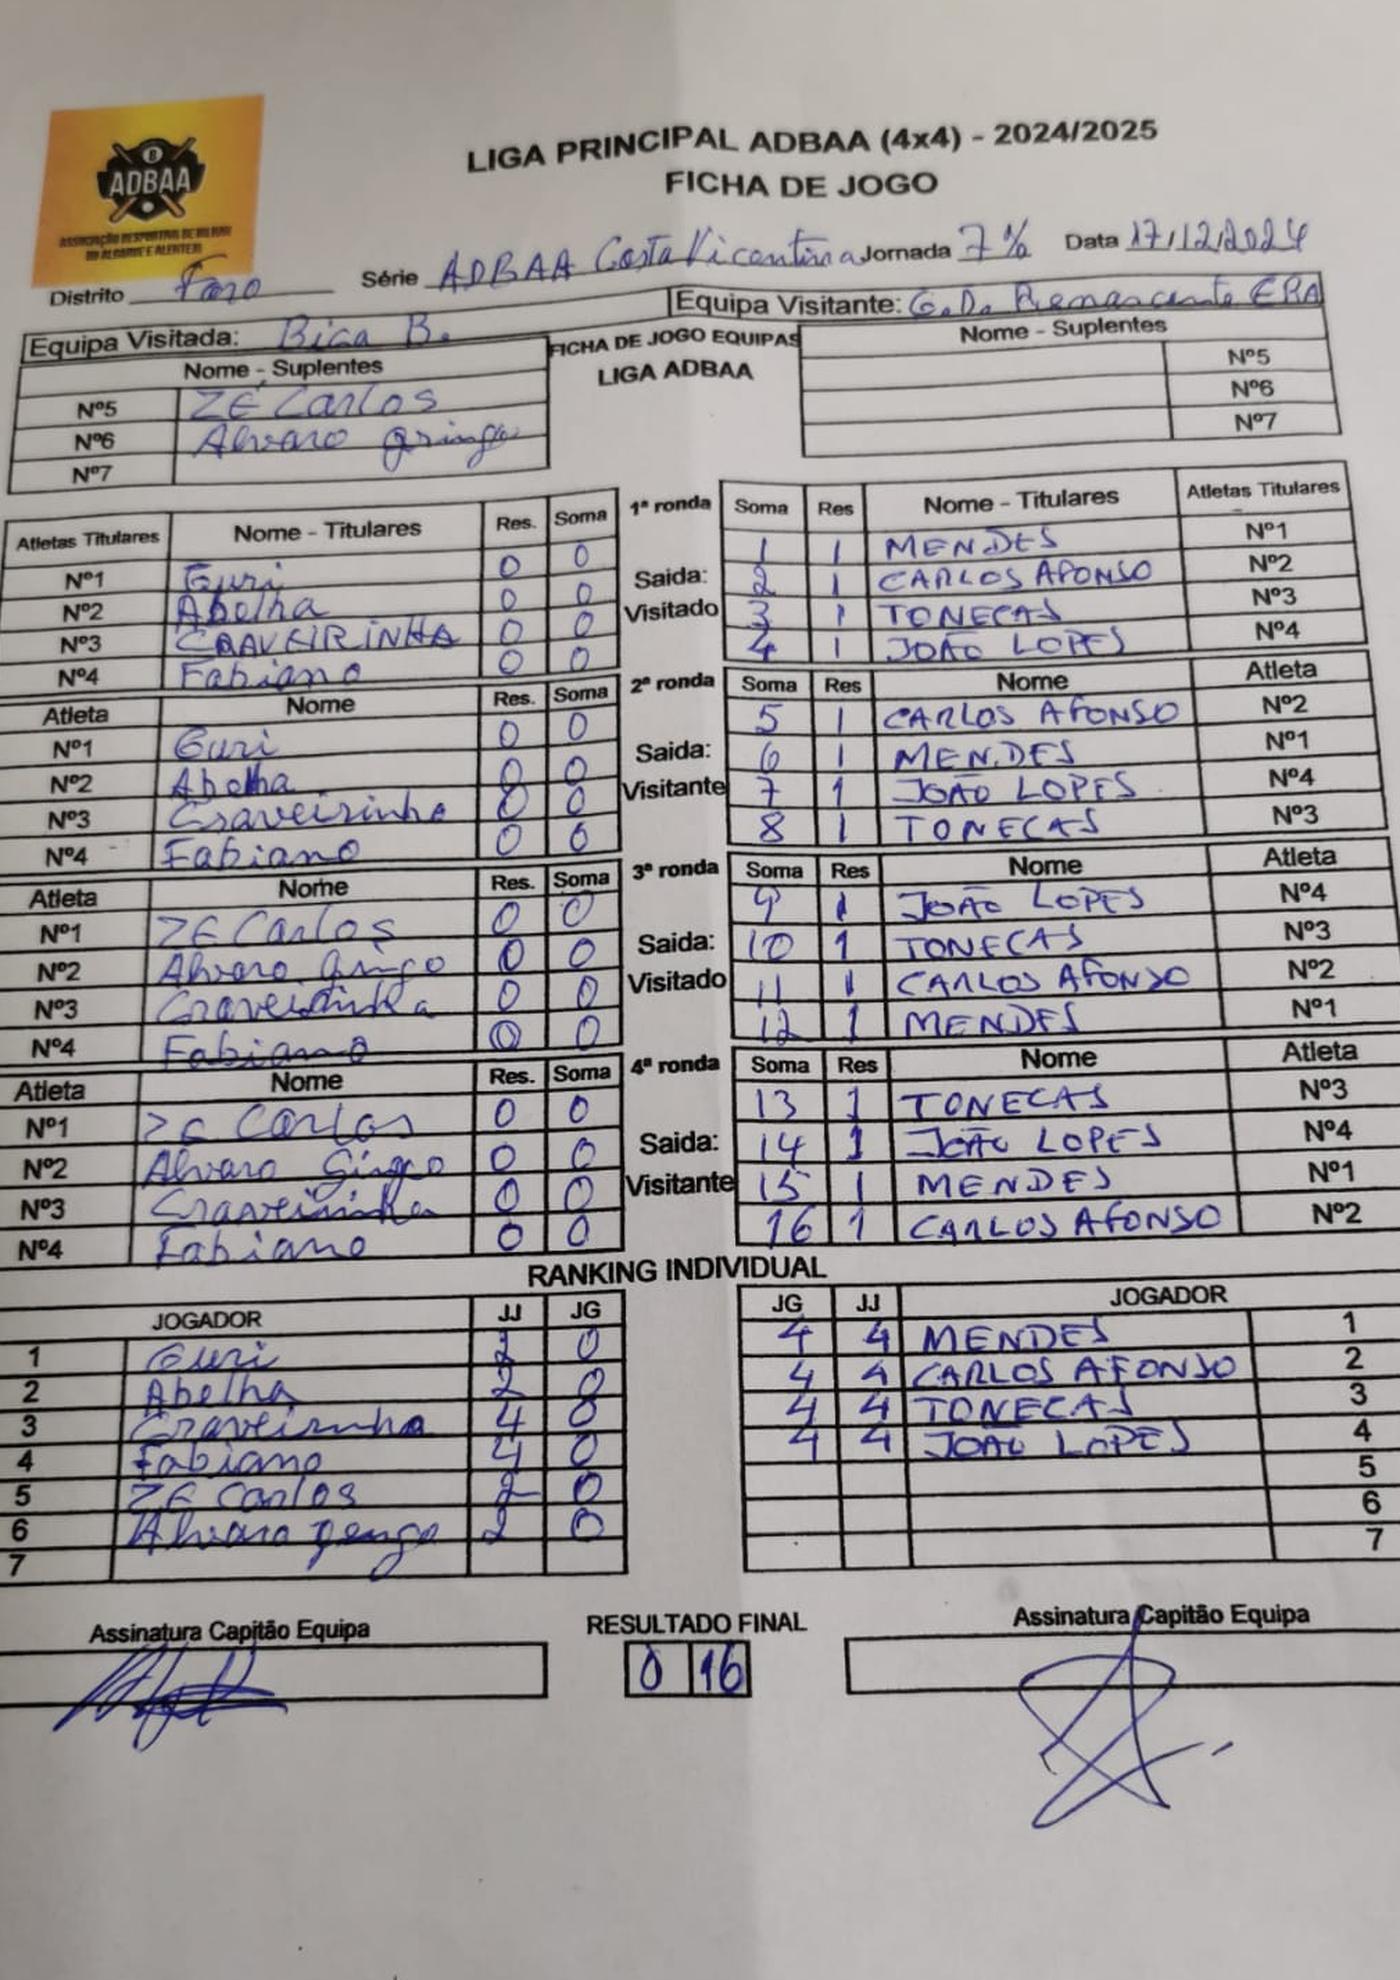 LIGA PRINCIPAL ADBAA (4x4) - 2024/2025
FICHA DE JOGO
8
ADBAA
ASSOCIAÇÃO DESPORTIVA DE BILHAR
DO ALGARVE E ALENTEJO
Distrito Faro Série ADBAA Costa Vicentina Jornada 7ª Data 17/12/2024
Equipa Visitada: Bica B. Equipa Visitante: G.D. Renascente ERA
Nome - Suplentes FICHA DE JOGO EQUIPAS Nome - Suplentes
LIGA ADBAA
Nº5 ZÉ Carlos Nº5
Nº6 Alvaro gringo Nº6
Nº7 Nº7
Atletas Titulares Nome - Titulares Res. Soma 1ª ronda Soma Res Nome - Titulares Atletas Titulares
Nº1 Guri 0 0 1 1 MENDES Nº1
Nº2 Abelha 0 0 Saida: 2 1 CARLOS AFONSO Nº2
Nº3 CRAVEIRINHA 0 0 Visitado 3 1 TONECAS Nº3
Nº4 Fabiano 0 0 4 1 JOÃO LOPES Nº4
Atleta Nome Res. Soma 2ª ronda Soma Res Nome Atleta
Nº1 Guri 0 0 5 1 CARLOS AFONSO Nº2
Nº2 Abelha 0 0 Saida: 6 1 MENDES Nº1
Nº3 Craveirinha 0 0 Visitante 7 1 JOÃO LOPES Nº4
Nº4 Fabiano 0 0 8 1 TONECAS Nº3
Atleta Nome Res. Soma 3ª ronda Soma Res Nome Atleta
Nº1 ZE Carlos 0 0 9 1 JOÃO LOPES Nº4
Nº2 Alvaro gringo 0 0 Saida: 10 1 TONECAS Nº3
Nº3 Craveirinha 0 0 Visitado 11 1 CARLOS AFONSO Nº2
Nº4 Fabiano 0 0 12 1 MENDES Nº1
Atleta Nome Res. Soma 4ª ronda Soma Res Nome Atleta
Nº1 ZE Carlos 0 0 13 1 TONECAS Nº3
Nº2 Alvaro 0 0 Saida: 14 1 JOÃO LOPES Nº4
Nº3 Craveirinha 0 0 Visitante 15 1 MENDES Nº1
Nº4 Fabiano 0 0 16 1 CARLOS AFONSO Nº2
RANKING INDIVIDUAL
JOGADOR JJ JG JG JJ JOGADOR
1 Guri 2 0 4 4 MENDES 1
2 Abelha 2 0 4 4 CARLOS AFONSO 2
3 Craveirinha 4 0 4 4 TONECAS 3
4 Fabiano 4 0 4 4 JOÃO LOPES 4
5 ZE Carlos 2 0 5
6 Alvaro 2 0 6
7 7
Assinatura Capitão Equipa RESULTADO FINAL Assinatura Capitão Equipa
0 16